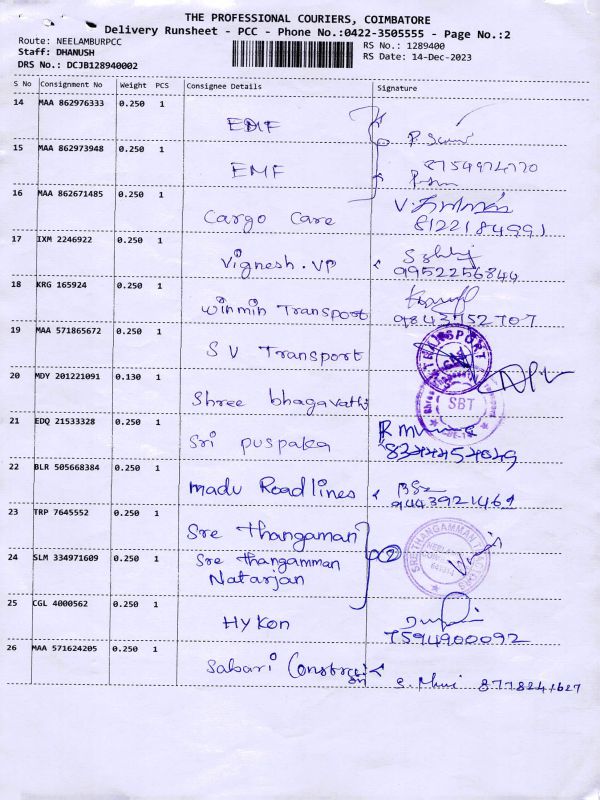 THE PROFESSIONAL COURIERS, COIMBATORE
Delivery Runsheet - PCC - Phone No.:0422-3505555 - Page No.:2
Route: NEELAMBURPCC
RS No.: 1289400
Staff: DHANUSH
RS Date: 14-Dec-2023
DRS No.: DCJB128940002
S No Consignment No Weight PCS Consignee Details Signature
14 MAA 862976333 0.250 1
EDIF
15 MAA 862973948 0.250 1
EMF
16 MAA 862671485 0.250 1
Cargo Care
8122184991
17 IXM 2246922 0.250 1
Vignesh.VP
9952256844
18 KRG 165924 0.250 1
Winmin Transport
9843752707
19 MAA 571865672 0.250 1
S V Transport
TRANSPORT
20 MDY 201221091 0.130 1
Shree bhagavathi
SBT
21 EDQ 21533328 0.250 1
Sri puspaka
22 BLR 505668384 0.250 1
madu Roadlines
9443921461
23 TRP 7645552 0.250 1
Sre Thangaman
2
SRE THANGAMMAN
24 SLM 334971609 0.250 1
Sre thangamman
Natarjan
25 CGL 4000562 0.250 1
Hykon
7594900092
26 MAA 571624205 0.250 1
Sabari Construction
8778241627